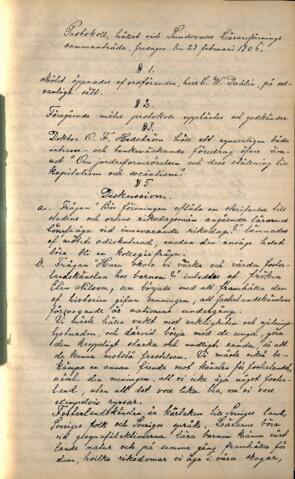 Protokoll, hållet vid Sundsvalls Lärareförenings
sammanträde, fredagen den 23 februari 1906.
§ 1.
Mötet öppnades af ordföranden, herr C. W. Dahlin, på sed-
vanligt sätt.
§ 2.
Föregående mötes protokoll upplästes och godkändes.
§ 3.
Doktor O. F. Hedström höll ett synnerligen både
intresse- och tankeväckande föredrag öfver äm-
net "Om jordreformrörelsen och dess ställning till
kapitalism och socialism".
§ 5
Diskussion.
a. Frågan "Bör föreningen aflåta en skrifvelse till
stadens och ortens riksdagsmän angående lärarnes
lönefråga vid innevarande riksdag?" lämnades
af mötet odiskuterad, emedan den ansågs helst
böra bli en kollegiefråga.
b. Frågan "Huru skola vi väcka och vårda foster-
landskänslan hos barnen?" inleddes af fröken
Elin Nilsson, som började med att framhålla den
af historien gifna sanningen, att fosterlandskänslans
försvagande är nationens undergång.
Vi måste hålla vakt mot vekligheten och njutnings-
lystnaden, och därvid börja med de unga, göra
dem kroppsligt starka och andligt sunda, så att
de kunna motstå frestelsen. Vi måste också be-
kämpa en annan fiende mot känslan för fosterlandet,
näml. den meningen, att vi icke äga något foster-
land, utan att det vore lika bra, om vi vore
exempelvis ryssar.
Fosterlandskänslan är kärleken till Sveriges land,
Sveriges folk och Sveriges språk. Läraren böra
vid geografilektionerna lära barnen känna vårt
lands natur och på samma gång framhålla för
dem, hvilka rikedomar vi äga i våra skogar,